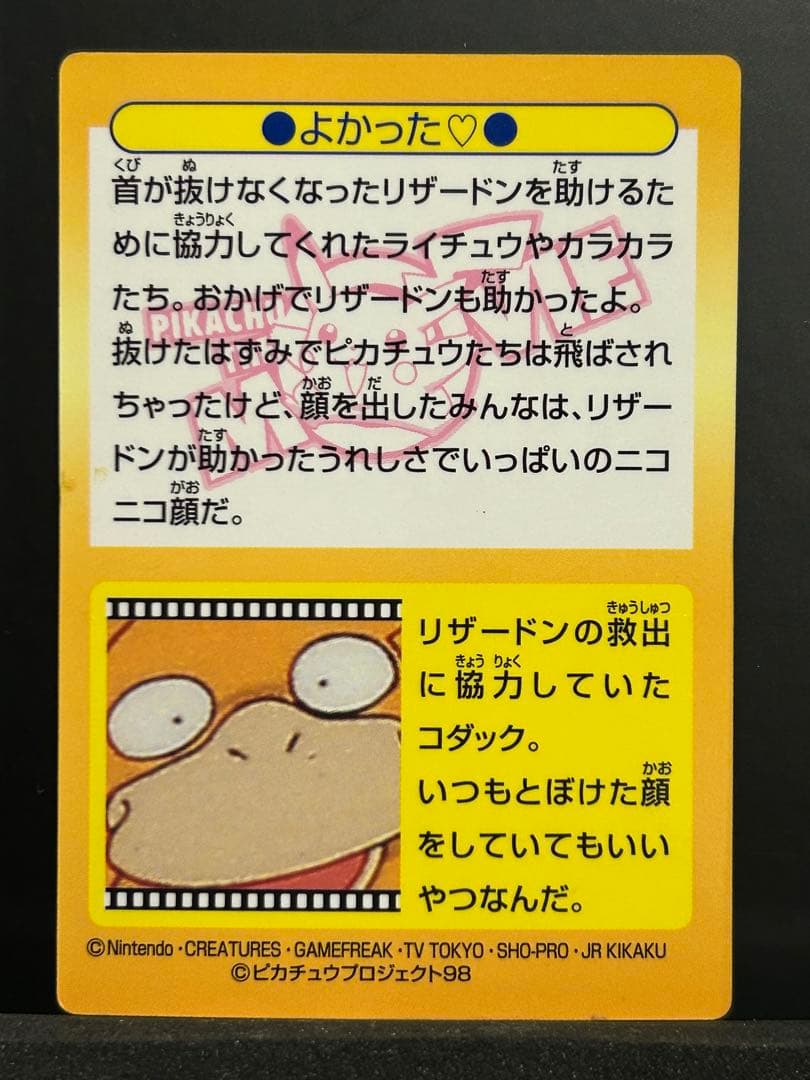 ●よかった♡●
首が抜けなくなったリザードンを助けるた
めに協力してくれたライチュウやカラカラ
たち。おかげでリザードンも助かったよ。
抜けたはずみでピカチュウたちは飛ばされ
ちゃったけど、顔を出したみんなは、リザー
ドンが助かったうれしさでいっぱいのニコ
ニコ顔だ。
PIKACHU
THE
MOVIE
リザードンの救出
に協力していた
コダック。
いつもとぼけた顔
をしていてもいい
やつなんだ。
©Nintendo・CREATURES・GAMEFREAK・TV TOKYO・SHO-PRO・JR KIKAKU
©ピカチュウプロジェクト98